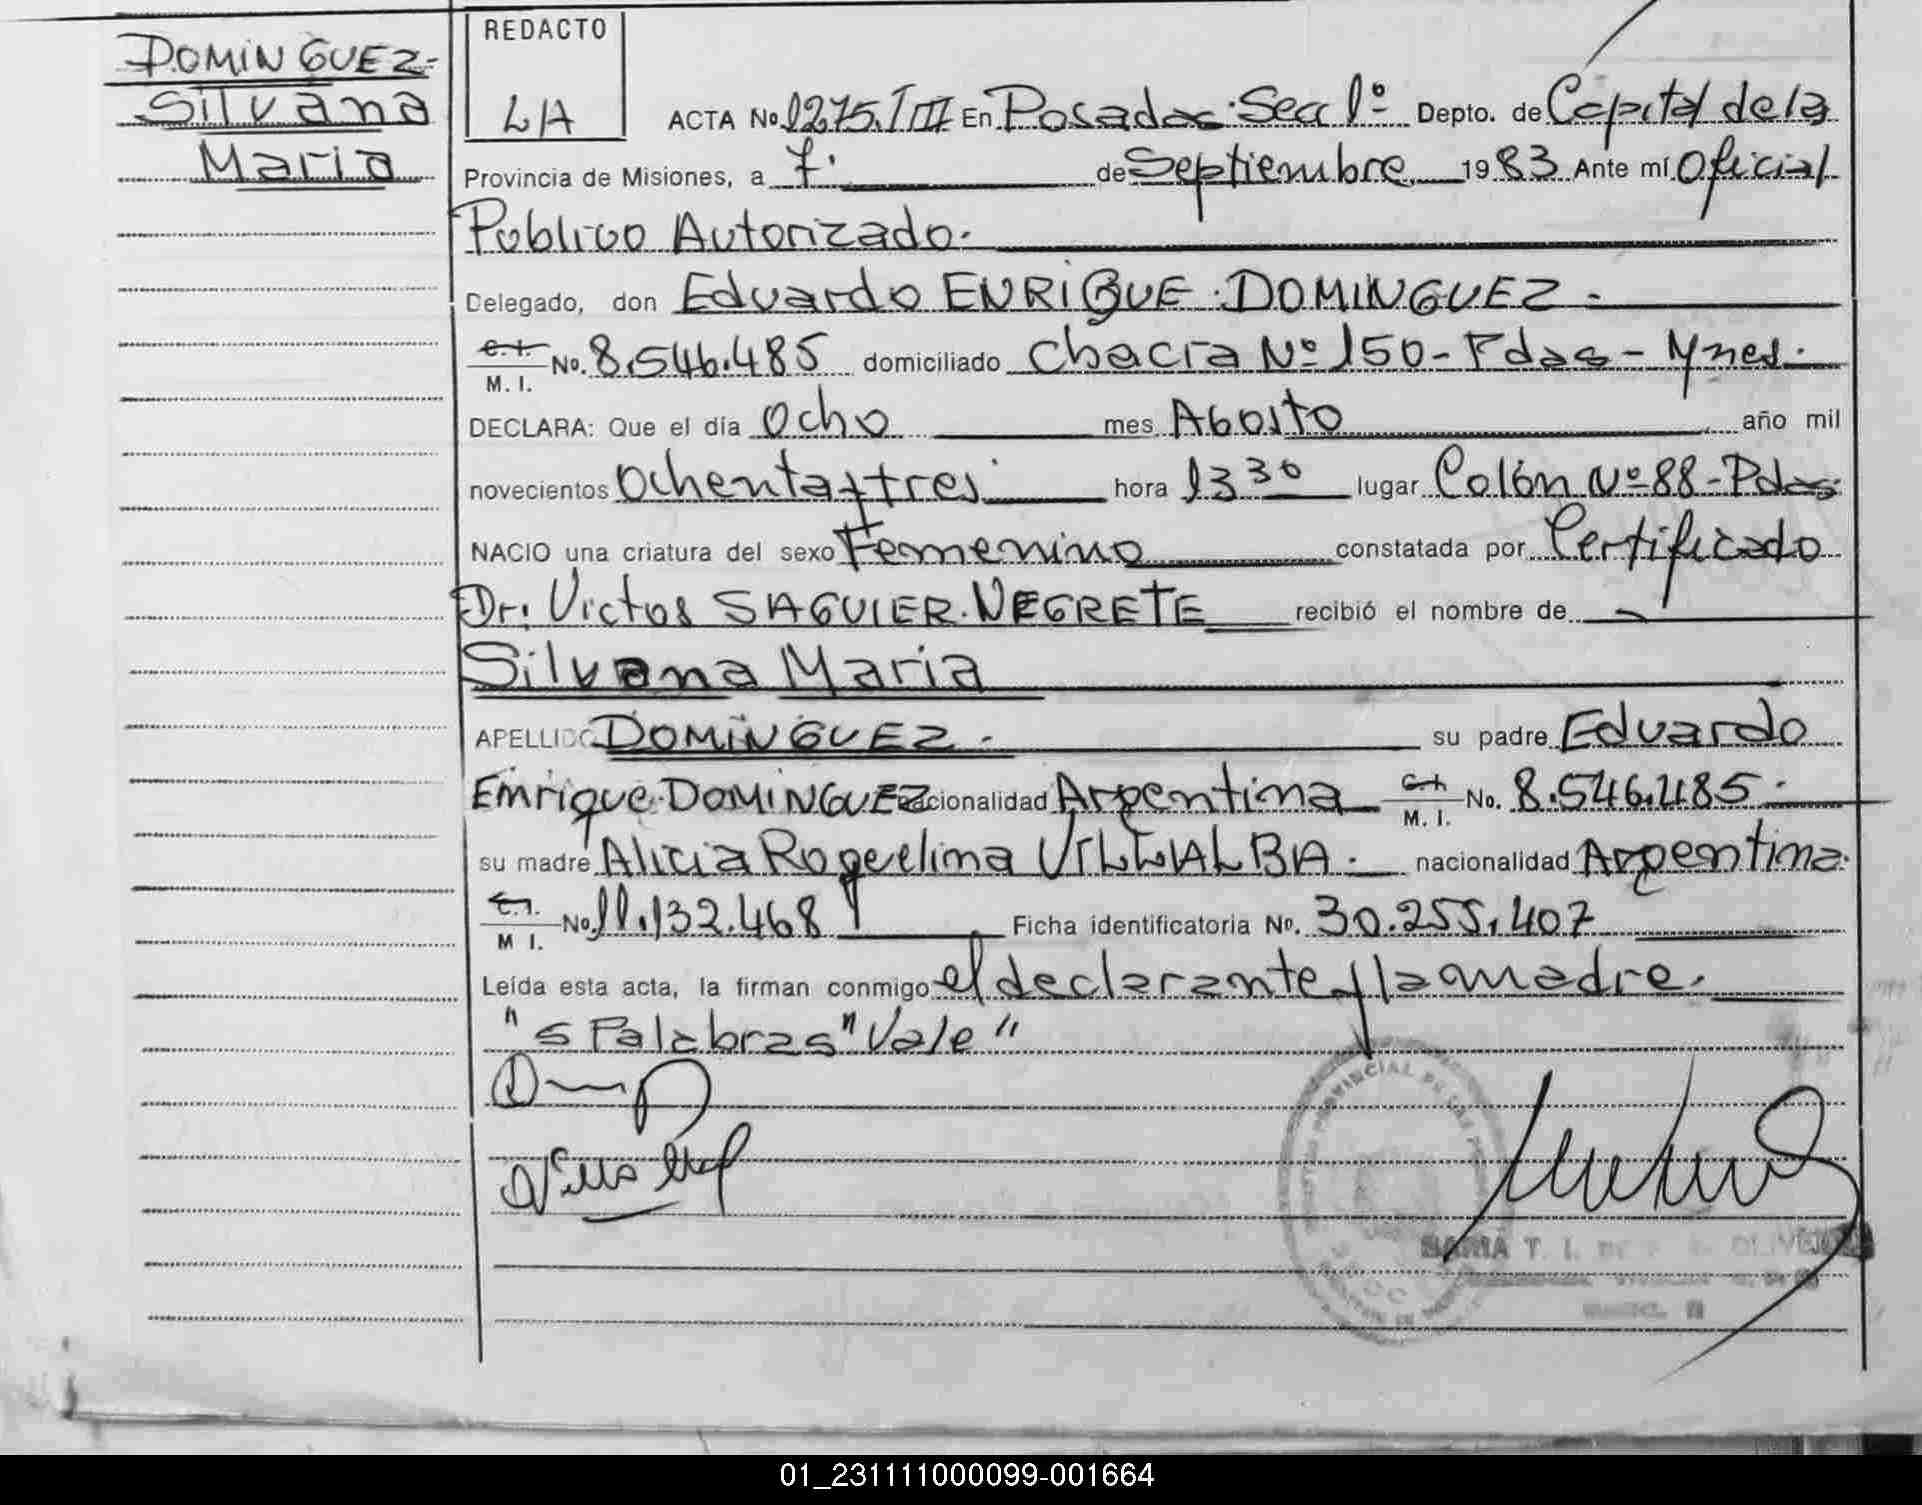 DOMINGUEZ-
Silvana
Maria
REDACTO
LA
ACTA No 1275.T III En Posadas. Secc 1º Depto. de Capital de la
Provincia de Misiones, a 7. de Septiembre 1983 Ante mí Oficial
Publico Autorizado.
Delegado, don Eduardo ENRIQUE DOMINGUEZ.
C.I.
M. I. No. 8.546.485 domiciliado Chacra Nº 150 - Pdas - Mnes.
DECLARA: Que el día Ocho mes AGOSTO año mil
novecientos Ochenta y tres hora 13 30 lugar Colón Nº 88 - Pdas
NACIO una criatura del sexo Femenino constatada por Certificado
Dr. Victor SAGUIER. NEGRETE recibió el nombre de
Silvana Maria
APELLIDO DOMINGUEZ. su padre Eduardo
Enrique DOMINGUEZ nacionalidad Argentina C.I. M. I. No. 8.546.485.
su madre Alicia Rogelina VILLALBA. nacionalidad Argentina.
C.I.
M I. No 11.132.468 Ficha identificatoria No. 30.255.407
Leída esta acta, la firman conmigo el declarante y la madre.
"5 Palabras" Vale"
MARIA T. I. DE OLIVEIRA
01_231111000099-001664